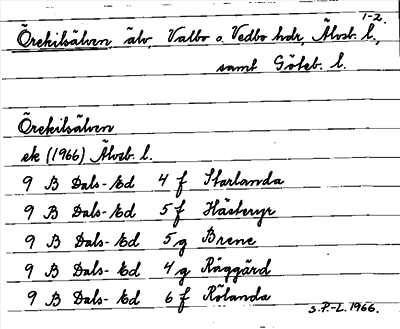 1-2.
Örekilsälven älv, Valbo o. Vedbo hdr, Älvsb. l.,
samt Göteb. l.
Örekilsälven
ek (1966) Älvsb. l.
9 B Dals-Ed 4 f Starlanda
9 B Dals-Ed 5 f Hästeryr
9 B Dals-Ed 5 g Brene
9 B Dals-Ed 4 g Råggärd
9 B Dals-Ed 6 f Rölanda
S.P.-L. 1966.